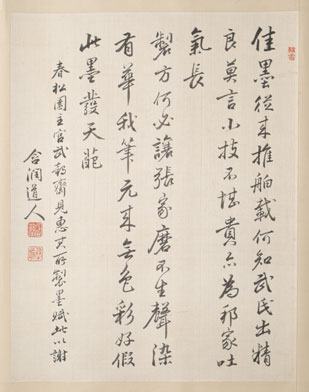 佳墨從來推舶載何知武氏出精
良莫言小技不堪貴亦為邦家吐
氣長
製方何必讓張家磨不生聲染
有華我筆元來無色彩好假
此墨發天葩
春松園主宮武齋見惠其所製墨賦此以謝
含潤道人